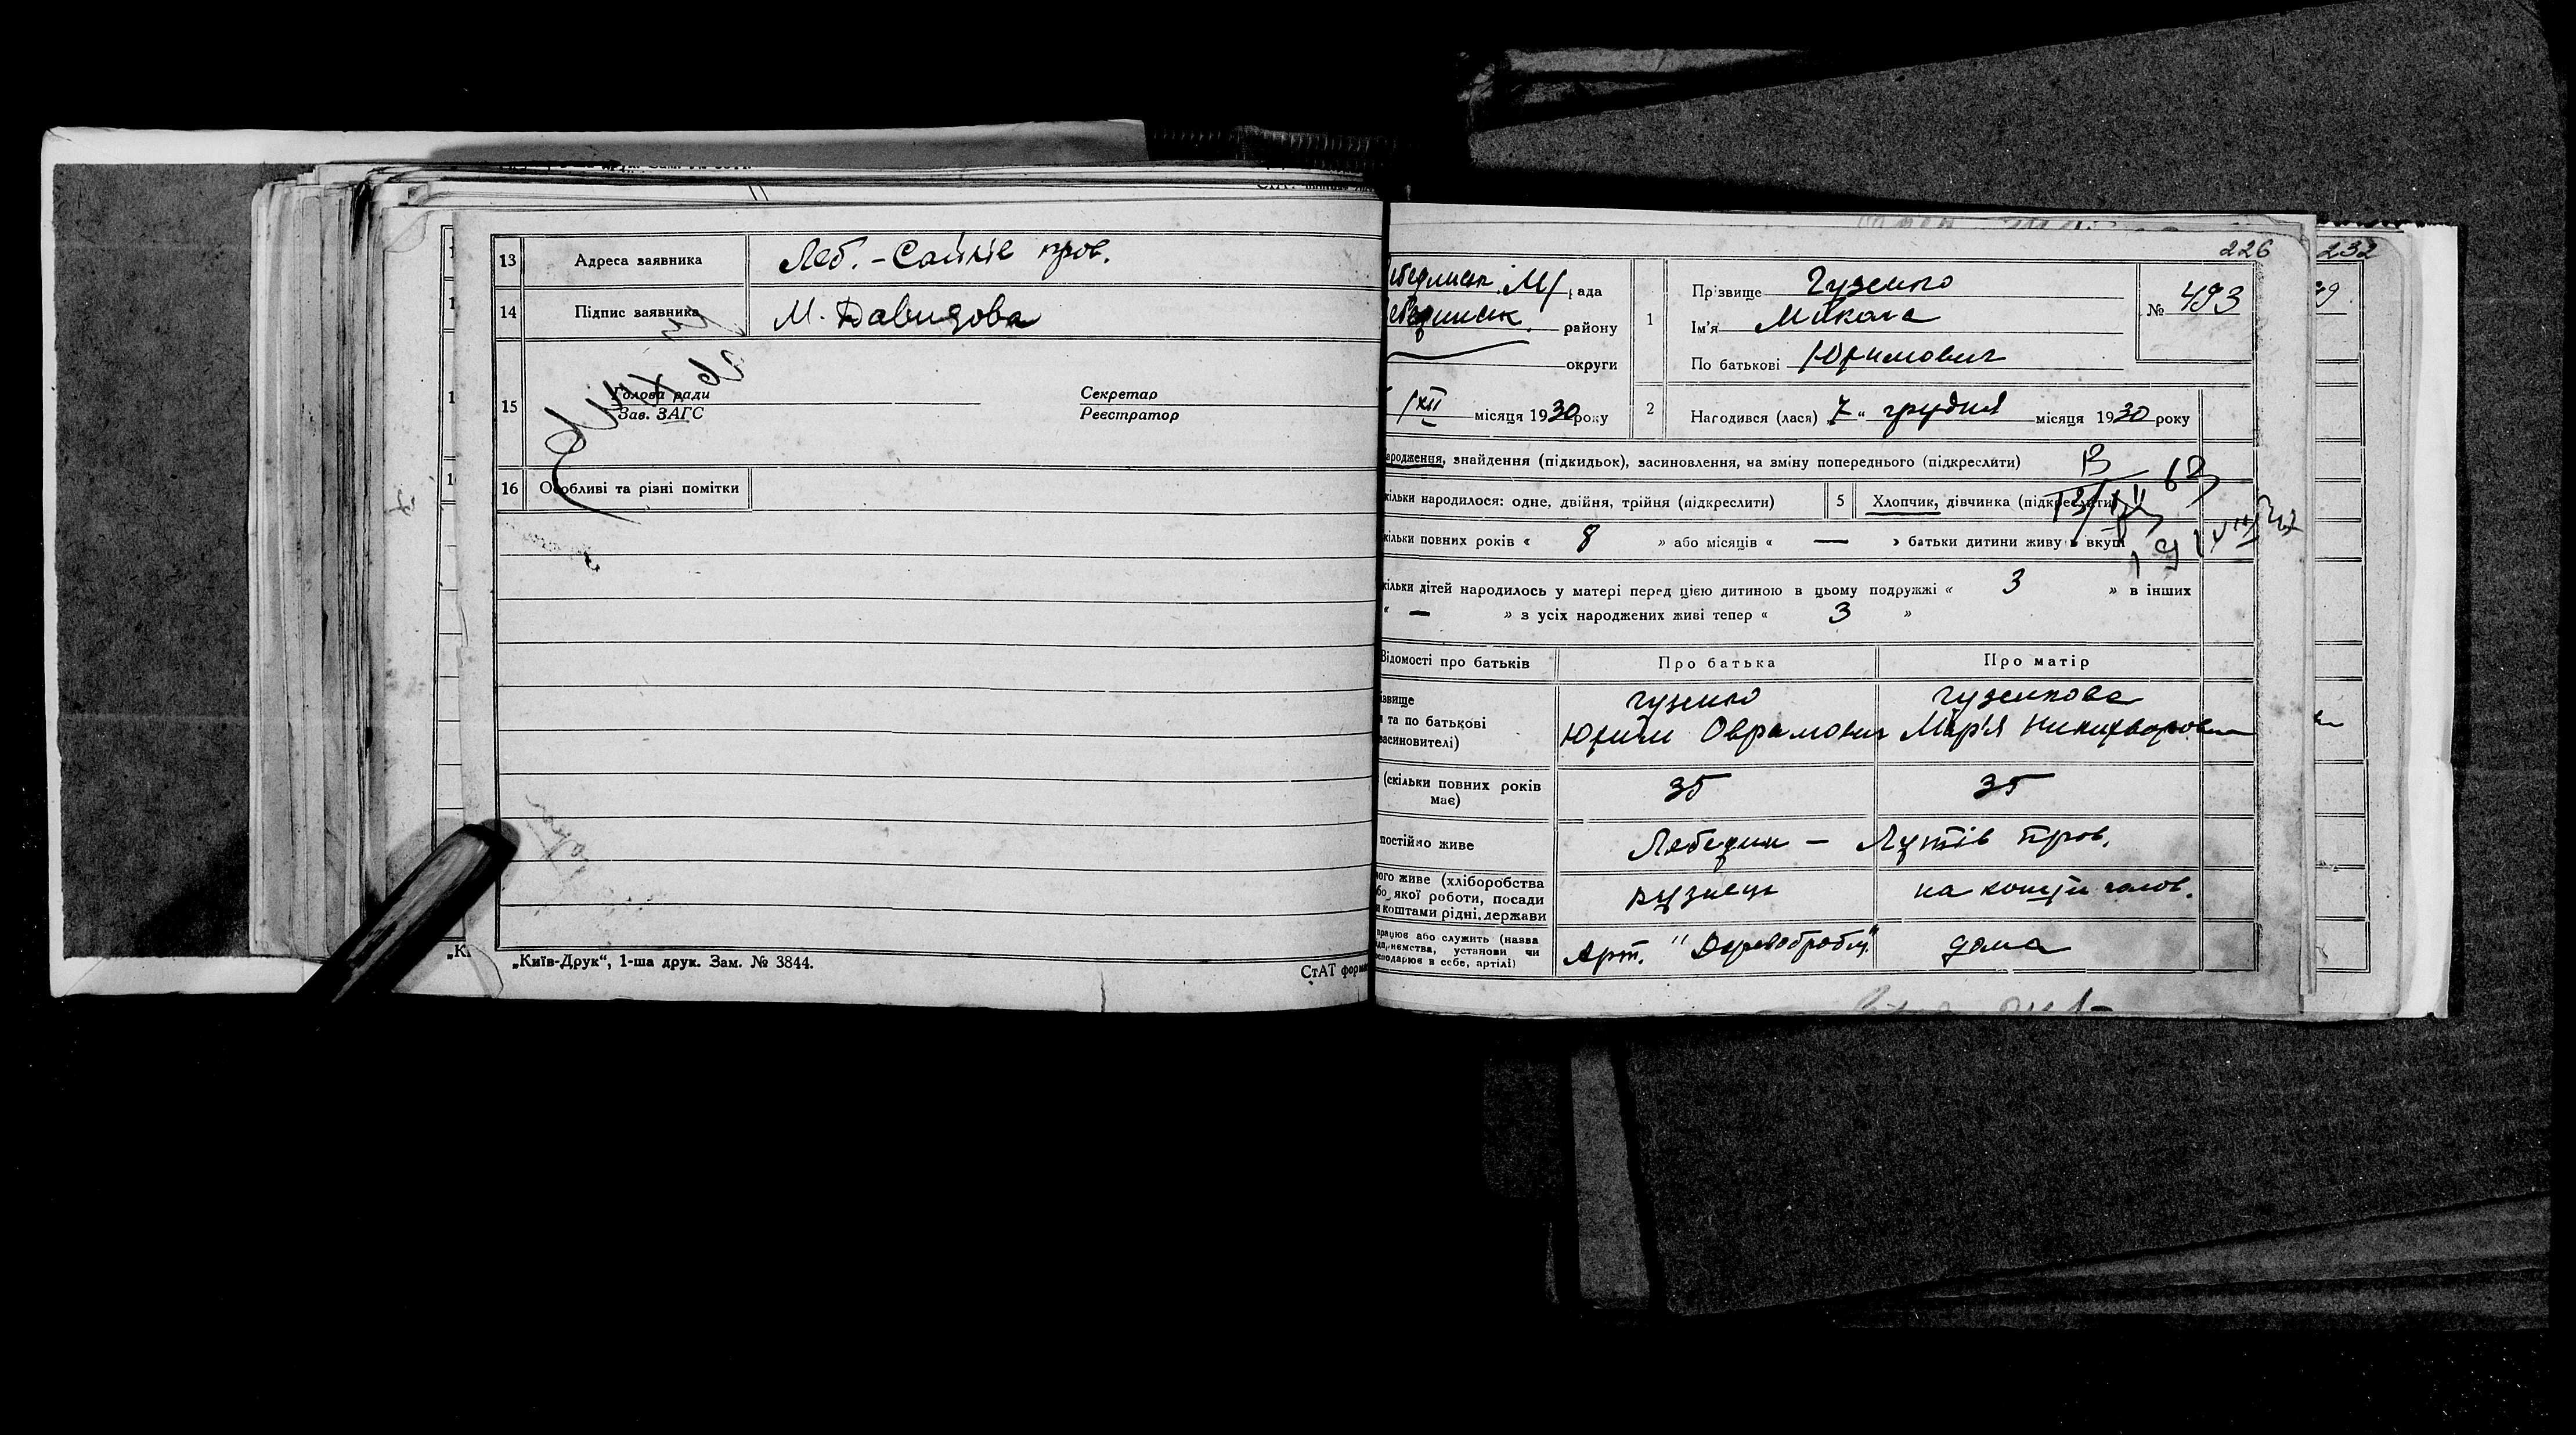 13 Адреса заявника Леб. - Сайків пров.
14 Підпис заявника М. Давидова
15 Голова ради Секретар
Зав. ЗАГС Реєстратор
16 Особливі та різні помітки
„Київ-Друк“, 1-ша друк. Зам. № 3844. СтАТ форма
226 232
ебединськ. М/рада
району
округи
1 Прізвище Гузенко
Ім'я Микола
По батькові Юхимович
№ 493
/XII місяця 1930 року
2 Народився (лася) 7 „ грудня місяця 1930 року
ародження, знайдення (підкидьок), засиновлення, на зміну попереднього (підкреслити)
кільки народилося: одне, двійня, трійня (підкреслити) 5 Хлопчик, дівчинка (підкреслити)
кільки повних років « 8 » або місяців « — » батьки дитини живуть вкупі
кільки дітей народилось у матері перед цією дитиною в цьому подружжі « 3 » в інших
« — » з усіх народжених живі тепер « 3 »
Відомості про батьків Про батька Про матір
ізвище Гузенко Гузенкова
та по батькові Юхим Оврамович Мар'я Никихворовна
засиновителі)
(скільки повних років має) 35 35
постійно живе Лебедин - Лутів пров.
ного живе (хліборобства
бо якої роботи, посади
коштами рідні, держави коваль на кошти голов.
працює або служить (назва
ідприємства, установи чи
господарює в себе, артілі) Арт. "Деревообробн." дома